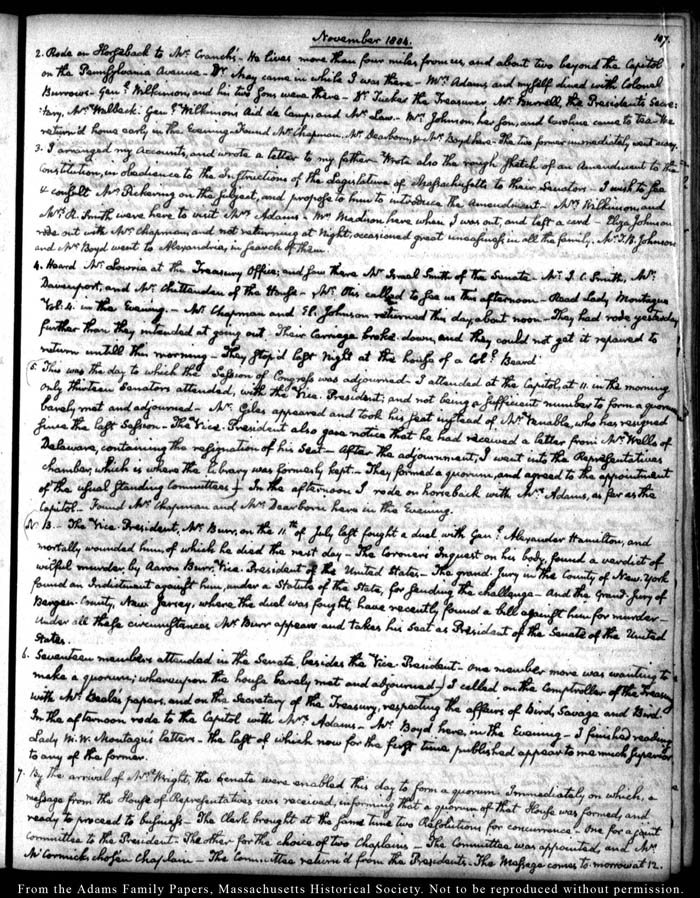 November 1804.
107.
2. Rode on Horseback to Mr. Cranch's. He lives more than four miles from us, and about two beyond the Capitol
on the Pennsylvania Avenue — Dr. May came in while I was there — Mrs. Adams and myself dined with Colonel
Burrows. Genl. Wilkinson, and his two Sons were there — Dr. Tucker the Treasurer, Mr. Burwell, the President's Secre-
:tary, Mr. Walback. Genl. Wilkinson's Aid de Camp, and Mr. Law. Mrs. Johnson, her son, and Caroline came to tea. We
return'd home early in the Evening. Found Mr. Chapman, Mr. Dearborn, & Mr. Boyd here. The two former immediately went away.
3. I arranged my Accounts, and wrote a letter to my father. Wrote also the rough sketch of an Amendment to the
Constitution, in obedience to the Instructions of the Legislature of Massachusetts to their Senators — I wish to see
& consult Mr. Pickering on the subject, and propose to him to introduce the Amendment — Mrs. Wilkinson, and
Mrs. R. Smith were here to visit Mrs. Adams — Mr. Madison here when I was out, and left a card — Eliza Johnson
rode out with Mr. Chapman, and not returning at Night, occasioned great uneasiness in all the family. Mr. T. B. Johnson
and Mr. Boyd went to Alexandria, in search of them.
4. Heard Mr. Lowrie at the Treasury Office; and saw there Mr. Israel Smith of the Senate. Mr. J. C. Smith, Mr.
Davenport, and Mr. Chittenden of the House. Mr. Otis called to see us this afternoon — Read Lady Montague
Vol: 4. in the Evening. — Mr. Chapman and El. Johnson returned this day, about noon — They had rode yesterday
further than they intended at going out. Their Carriage broke down, and they could not get it repaired to
return untill this morning — They stop'd last night at the house of a Col. Beard.
5. This was the day to which the Session of Congress was adjourned. I attended at the Capitol, at 11. in the morning
only thirteen Senators attended, with the Vice-President, and not being a sufficient number to form a quorum
barely met and adjourned — Mr. Giles appeared and took his seat instead of Mr. Venable, who has resigned
since the last Session — The Vice-President also gave notice that he had received a letter from Mr. Wells of
Delaware, containing the resignation of his Seat — After the adjournment, I went into the Representatives
chamber, which is where the Library was formerly kept — They formed a quorum, and agreed to the appointment
of the usual standing Committees — In the afternoon I rode on horseback with Mrs. Adams, as far as the
Capitol — Found Mr. Chapman and Mr. Dearborn here in the Evening.
N. B. — The Vice-President, Mr. Burr, on the 11th of July last fought a duel with Genl. Alexander Hamilton, and
mortally wounded him, of which he died the next day — The Coroner's Inquest on his body, found a verdict of
wilful murder, by Aaron Burr, Vice-President of the United States — The grand-Jury in the County of New-York
found an Indictment against him, under a Statute of the State, for sending the challenge — And the Grand-Jury of
Bergen-County, New Jersey, where the duel was fought, have recently found a bill against him for murder —
Under all these circumstances Mr. Burr appears and takes his seat as President of the Senate of the United
States.
6. Seventeen members attended in the Senate, besides the Vice-President — one member more was wanting to
make a quorum; whereupon the house barely met and adjourned — I called on the Comptroller of the Treasury
with Mr. Beale's papers, and on the Secretary of the Treasury, respecting the affairs of Bird, Savage and Bird
In the afternoon rode to the Capitol with Mrs. Adams — Mr. Boyd here, in the Evening — I finished reading
Lady M. W. Montague's letters — the last of which now for the first time published appear to me much superior
to any of the former.
7. By the arrival of Mr. Wright, the Senate were enabled this day to form a quorum. Immediately on which, a
message from the House of Representatives was received, informing that a quorum of that House was formed, and
ready to proceed to business — The Clerk brought at the same time two Resolutions for concurrence — One for a joint
Committee to the President — The other for the choice of two Chaplains — The Committee was appointed, and Mr.
McCormick chosen Chaplain — The Committee return'd from the President's — The Message comes to-morrow at 12.
From the Adams Family Papers, Massachusetts Historical Society. Not to be reproduced without permission.